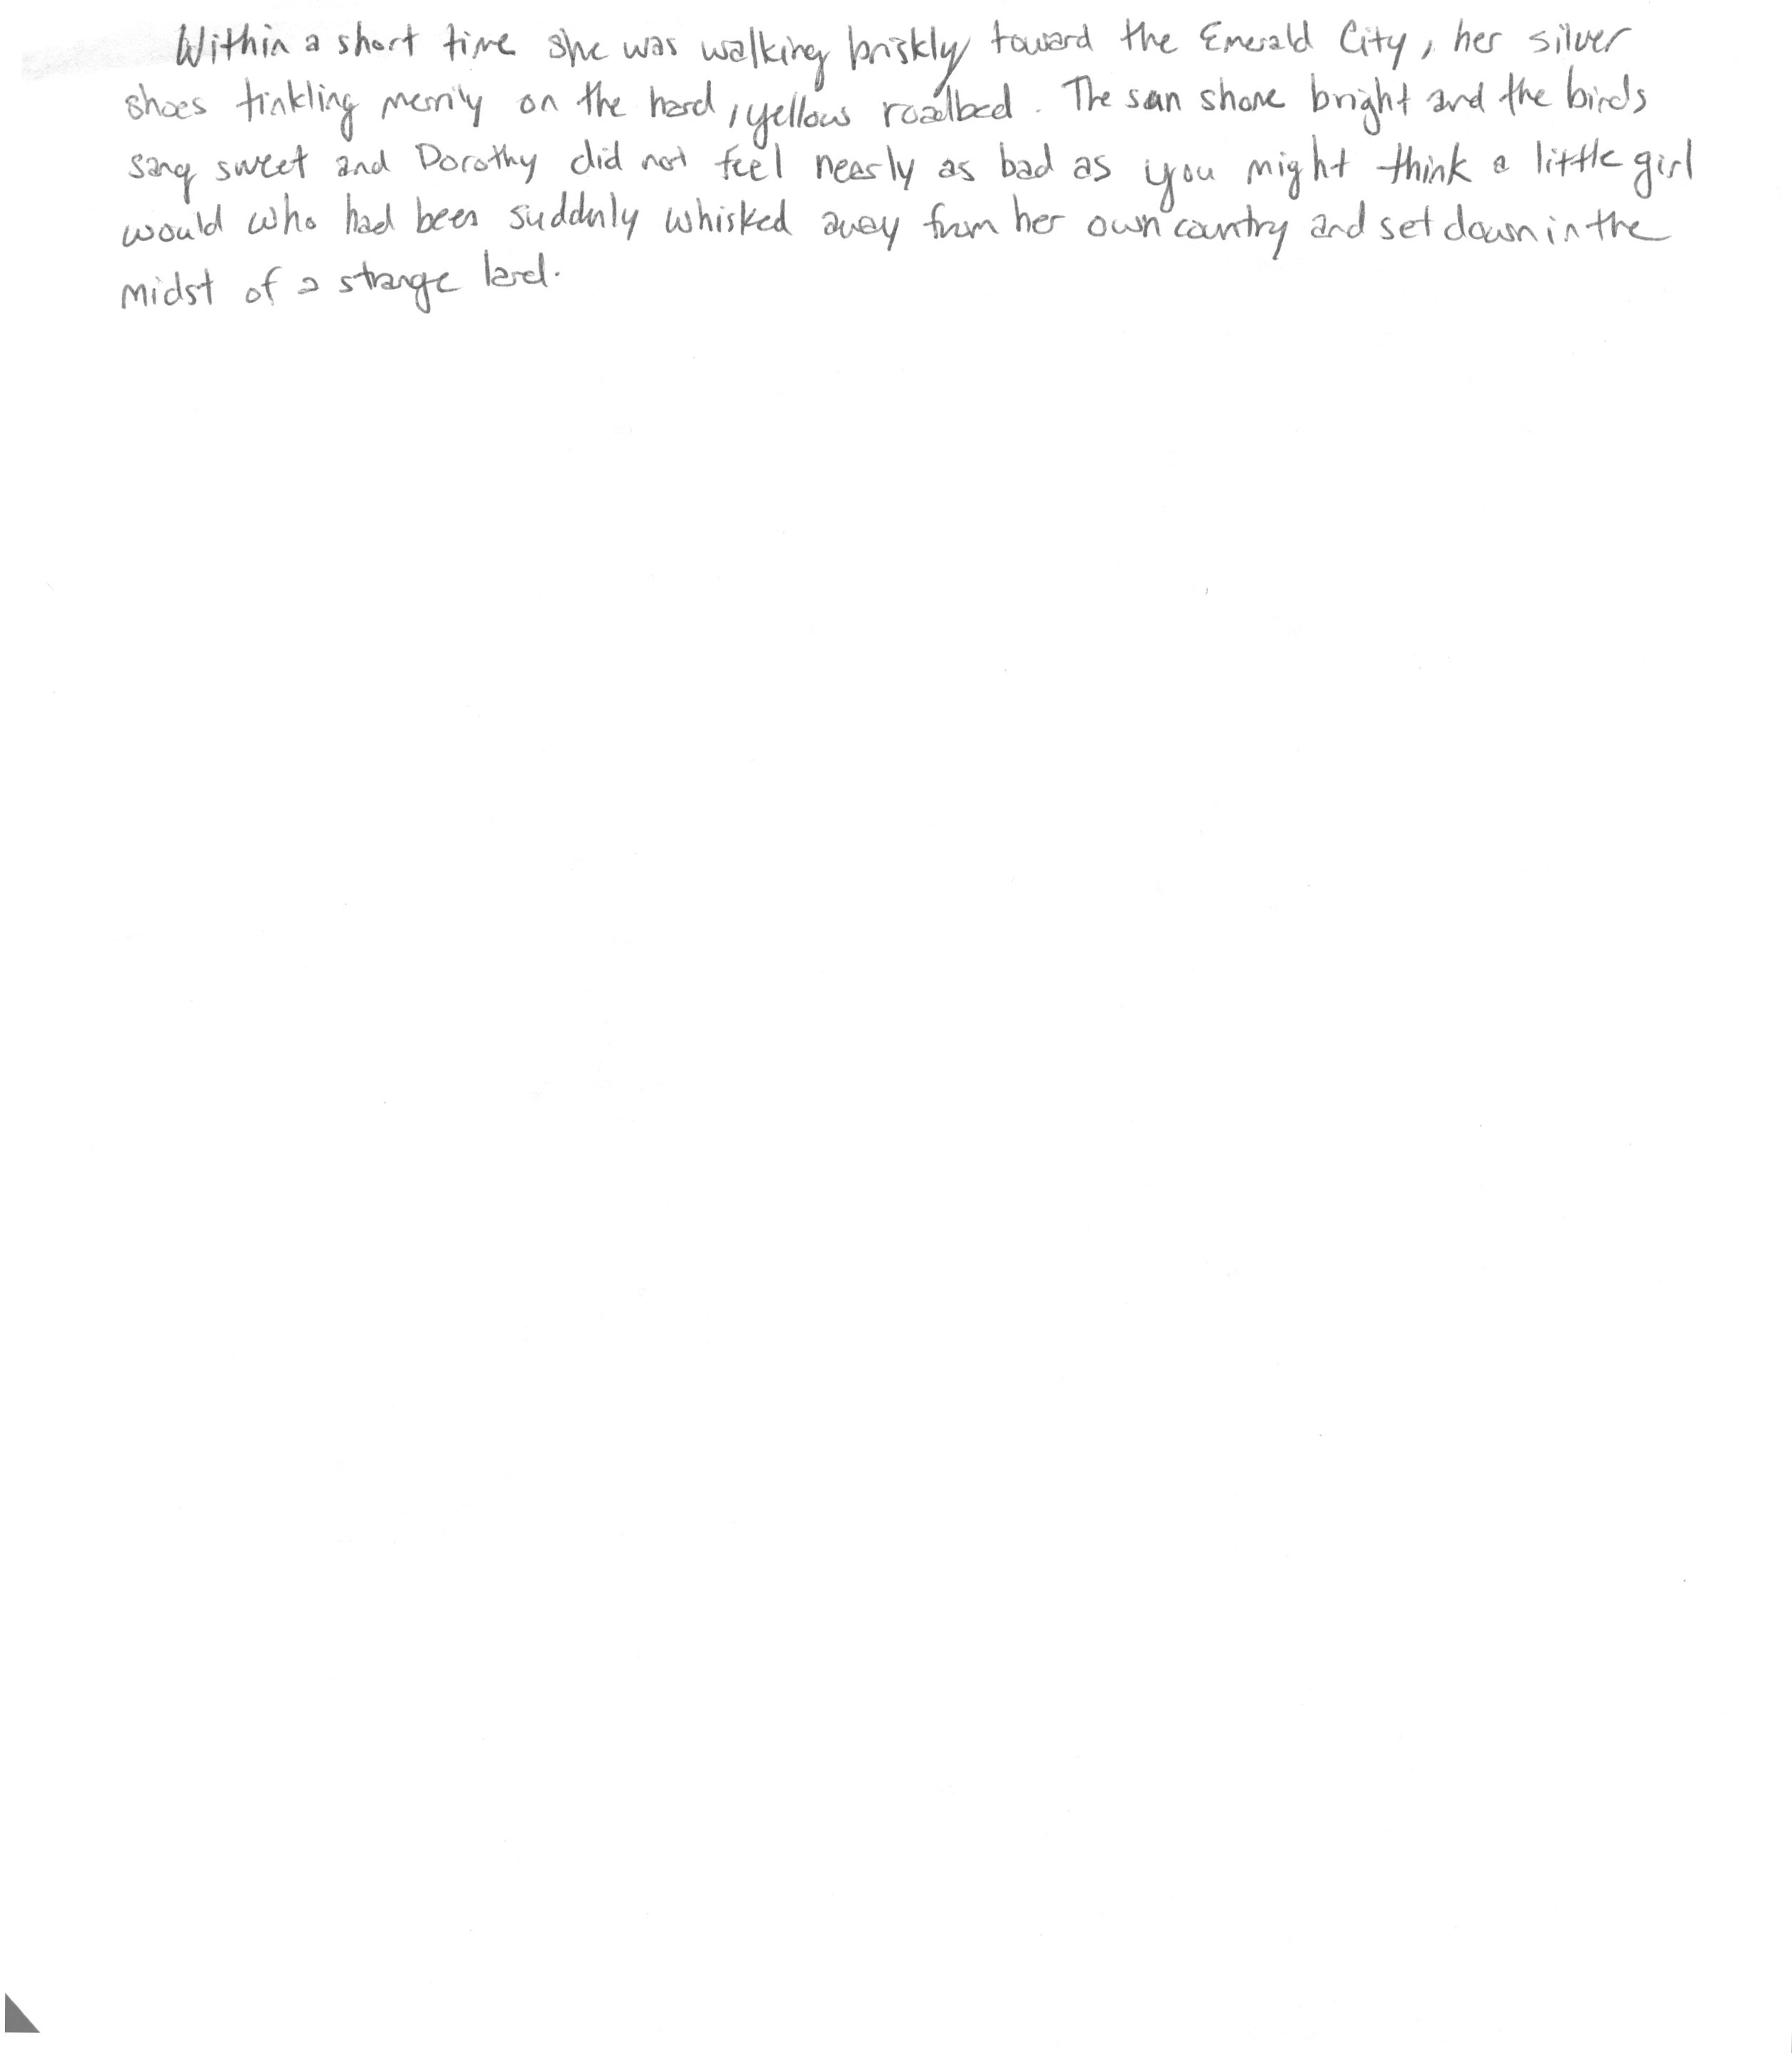 Within a short time she was walking briskly toward the Emerald City, her silver
shoes tinkling merrily on the hard, yellow roadbed. The sun shone bright and the birds
sang sweet and Dorothy did not feel nearly as bad as you might think a little girl
would who had been suddenly whisked away from her own country and set down in the
midst of a strange land.